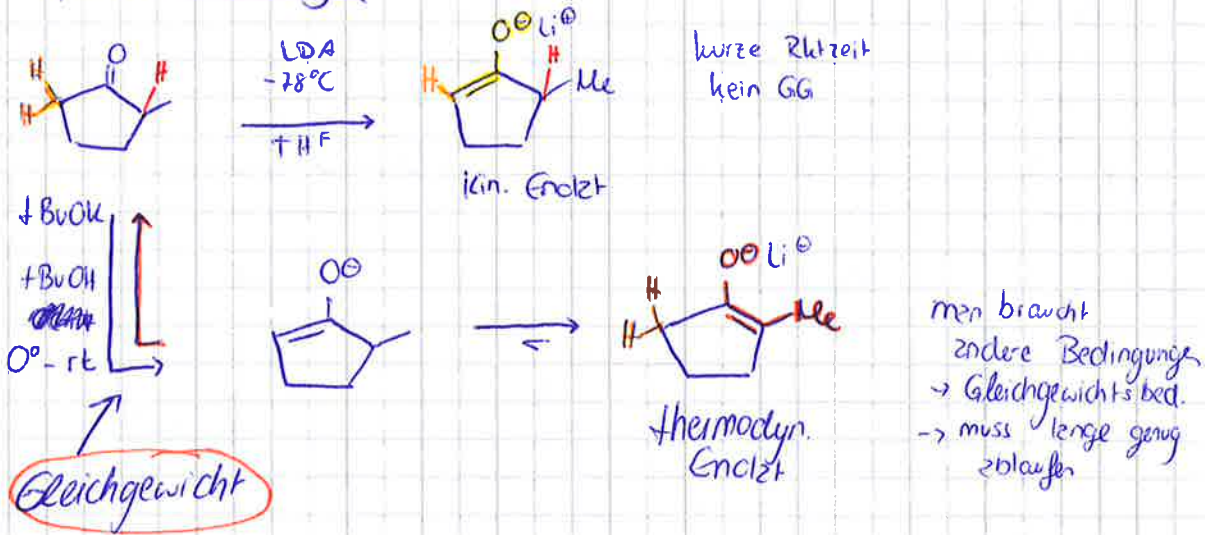 O
H
H
H
LDA
-78°C
THF
O⊖ Li⊕
H
H
Me
kurze Rktzeit
kein GG
kin. Enolat
tBuOK
tBuOH
0° - rt
O⊖
O⊖ Li⊕
H
H
Me
thermodyn.
Enolat
man braucht
andere Bedingungen
→ Gleichgewichtsbed.
→ muss lange genug
ablaufen
Gleichgewicht